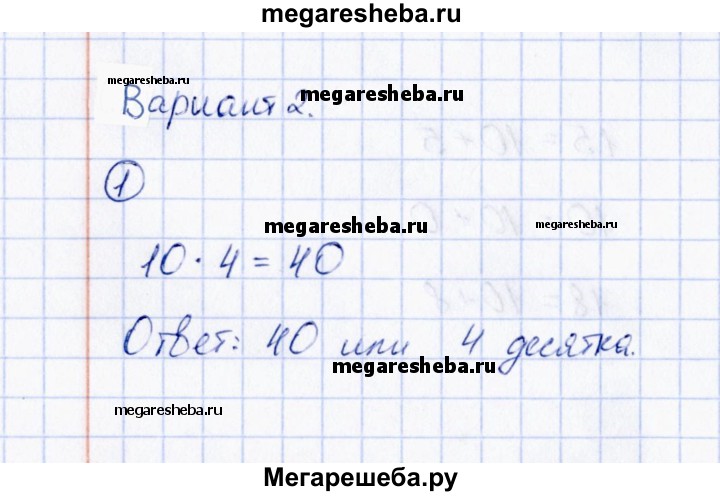 megaresheba.ru
megaresheba.ru
Вариант 2.
megaresheba.ru
1
megaresheba.ru
megaresheba.ru
10 · 4 = 40
Ответ: 40 или 4 десятка.
megaresheba.ru
megaresheba.ru
Мегарешеба.ру